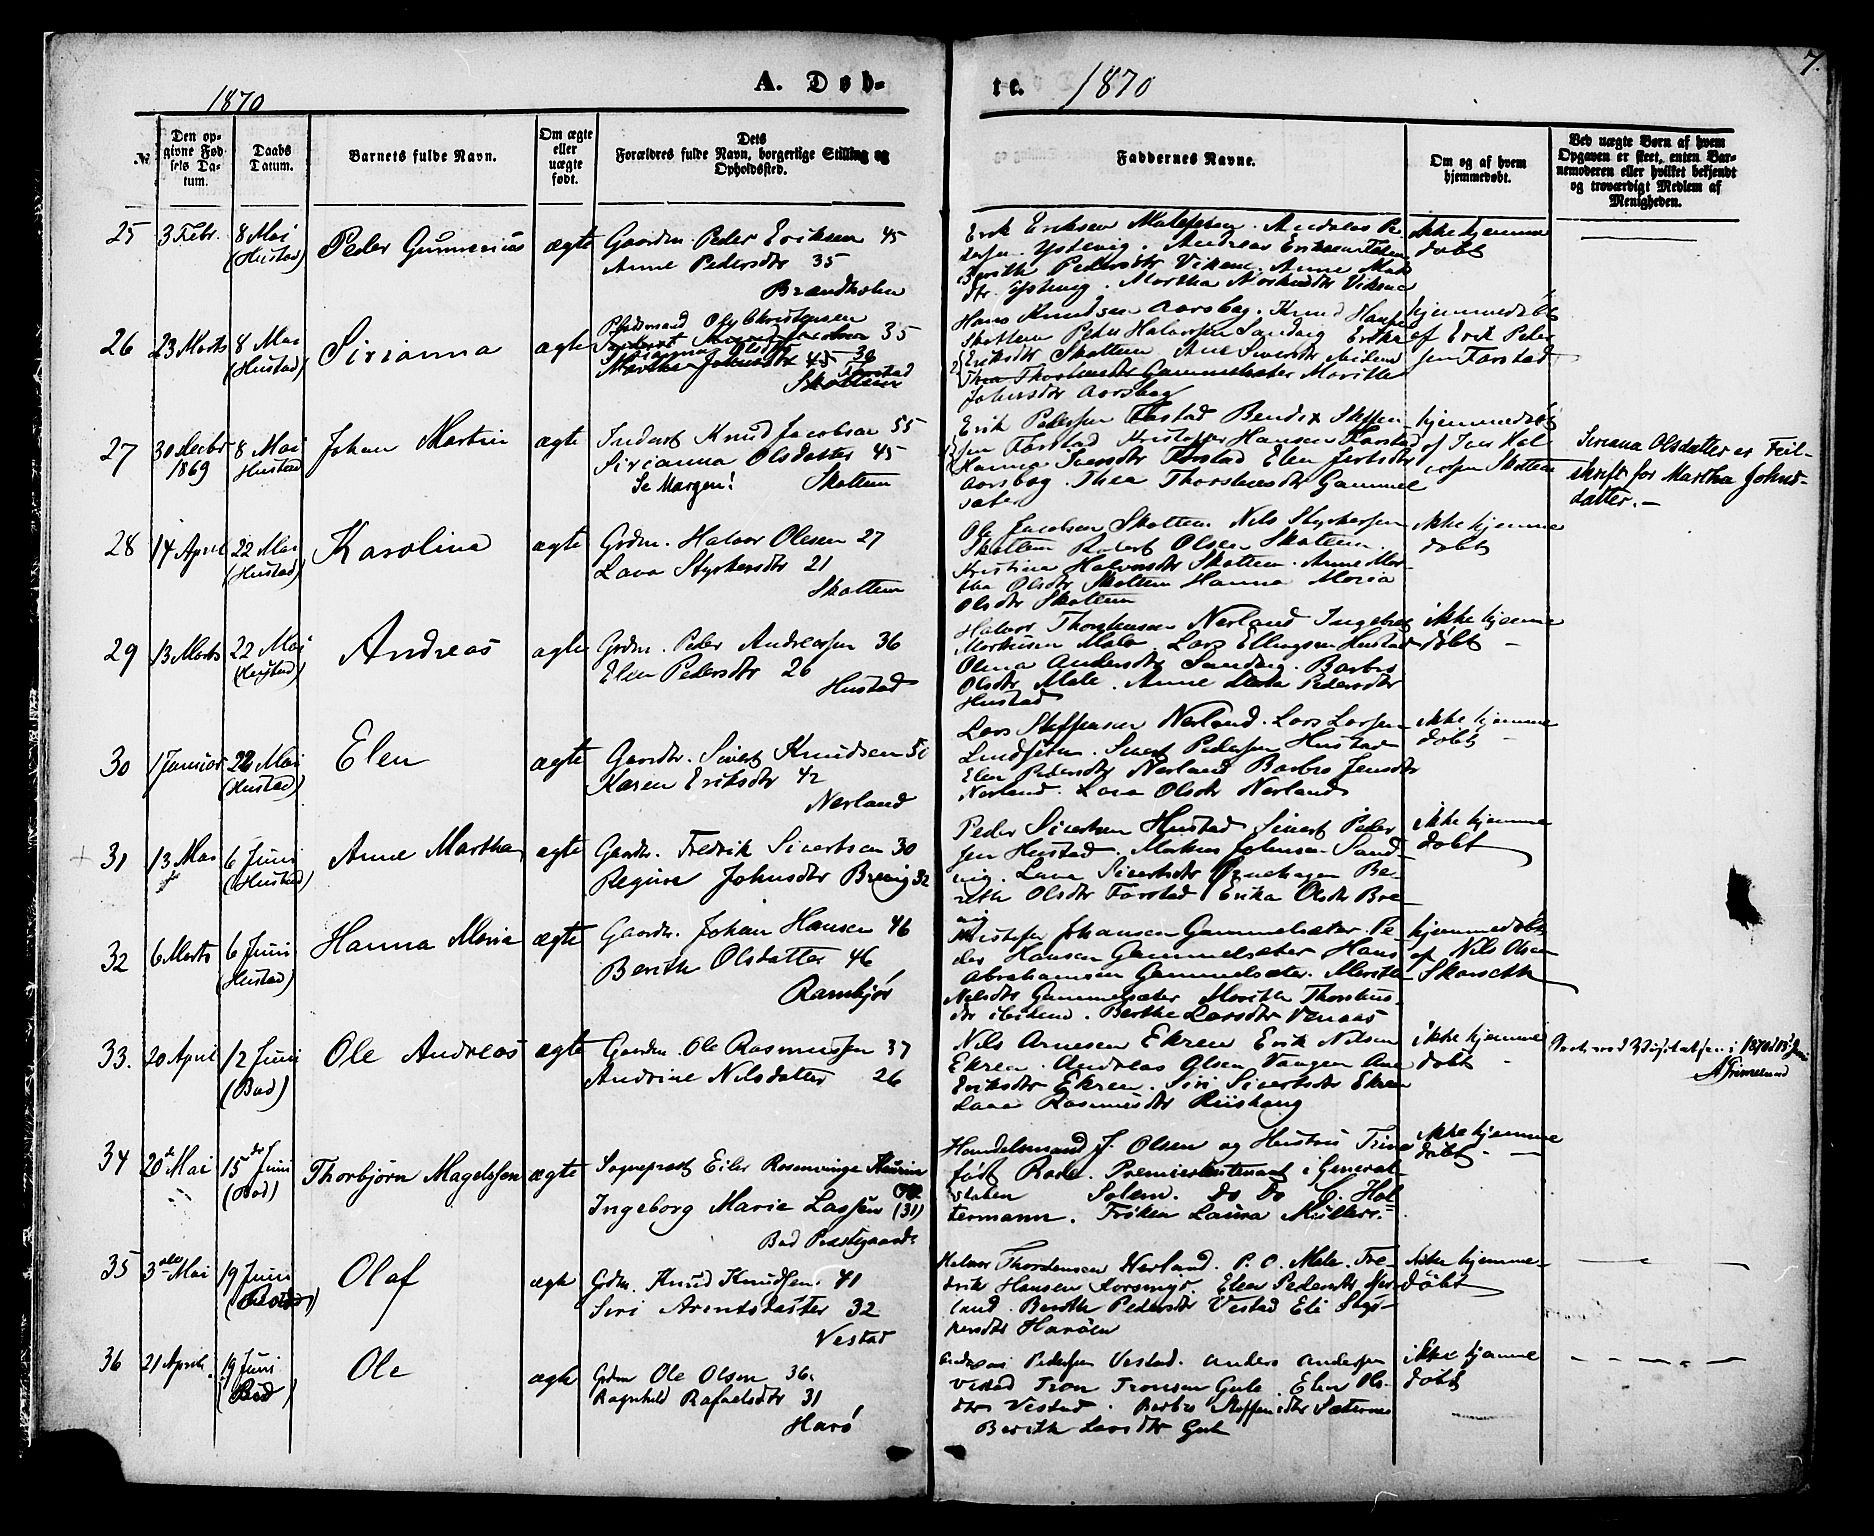 7.
1870
A. Døb-
te.
1870
№
Den op-
givne Fød
sels Da-
tum.
Daabs
Datum.
Barnets fulde Navn.
Om ægte
eller
uægte
født.
Dets
Forældres fulde Navn, borgerlige Stilling og
Opholdssted.
Faddernes Navne.
Om og af hvem
hjemmedøbt.
Ved uægte Børn af hvem
Opgaven er skeet, enten Bar-
nemoderen eller hvilket bekjendt
og troværdigt Medlem af
Menigheden.
25
3 Febr.
8 Mai
(Hustad)
Peder Gunnerius
ægte
Gaardm. Peder Eriksen 45
Anne Pedersdtr 35
Brandholm
Erik Eriksen Andreas Pe-
dersen Andreas Eriksen
Berithe Pedersdtr Anne
Martha
ikke hjemme
døbt
26
23 Marts
8 Mai
(Hustad)
Sirianna
ægte
Pladsmand Ole Christensen
35
Martha Johnsdtr 45 36
Farstad
Skottem
Hans Knudsen Aarsbog. Knud Hans
Skottem Peder Halvorsen Sandvig Erika
Eriksdtr Skottem Ane Siversdtr
Thea Thorstensdtr Gammelsæter Marithe
Johnsdtr Aarsbog
hjemmedøbt
af Erik Peder
sen Farstad
27
30 Decbr
1869
8 Mai
Hustad
Johan Martin
ægte
Inderst Knud Jacobsen 55
Sirianna Olsdatter 45
Se Margen! Skottem
Erik Pedersen Farstad Bendix Steffen-
sen Farstad Kristoffer Hansen Farstad
Hanna Sversdtr Farstad Elen
Aarsbog. Thea Thorstensdtr Gammel
sæter
hjemmedøbt
af Jens Hal
vorsen Skottem
Siriana Olsdatter er Feil-
skrift for Martha Johns-
datter.-
28
14 April
22 Mai
(Hustad)
Karolina
ægte
Grdm. Halvor Olesen 27
Lava Styrkersdtr 21
Skottem
Ole Jacobsen Skottem. Nils Styrkersen
Skottem Robert Olsen Skottem.
Kristina Halvorsdtr Skottem. Anne Mar-
tha Olsdtr Skottem Hanna Maria
Olsdtr Skottem
ikke hjemme
døbt
29
13 Marts
22 Mai
(Hustad)
Andreas
ægte
Grdm. Peder Andreassen 36
Elen Pedersdtr 26
Hustad
Halvor Thorstensen Nerland Ingebret
Male. Lars Ellingsen Hustad
Olina Andersdtr Sandvig. Barbro
Olsdtr Male. Anne Pedersdtr
Hustad
ikke hjemme
døbt -
30
1 Januar
22 Mai
(Hustad)
Elen
ægte
Gaardbr. Sivert Knudsen 50
Karen Eriksdtr 42
Nerland
Lars Steffensen Nerland. Lars Larsen
Lindseth. Sivert Pedersen Hustad
Elen Pedersdtr Nerland Barbro Jensdtr
Nerland. Lava Olsdtr Nerland
ikke hjemme
døbt -
31
13 Mai
6 Juni
(Hustad)
Anne Martha
ægte
Gaardbr. Fredrik Sivertsen 30
Regine Johnsdtr Brevig 32
Peder Sivertsen Hustad Sivert Peder
sen Hustad. Johnsen Sand-
vig. Lava Sivertsdtr Be-
rith Olsdtr Farstad Erika Olsdtr Bre
vig
ikke hjemme
døbt
32
6 Marts
6 Juni
(Hustad)
Hanna Maria
ægte
Gaardbr. Johan Hansen 46
Berith Olsdatter 46
Rambjør
Kristofer Johansen Gammelsæter. Pe-
der Hansen Gammelsæter Hans
Abrahamsen Gammelsæter. Marith
Nilsdtr Gammelsæter Marith Thorstens-
dtr ibidem. Berthe Larsdtr Venaas
hjemmedøbt
af Nils Olsen
Skarseth
33.
20 April
12 Juni
(Bud)
Ole Andreas
ægte
Gaardm. Ole Rasmussen 37
Andrine Nilsdatter 26
Nils Arnesen Ekren Erik Nilsen
Ekren. Andreas Olsen Vangen Ane
Eriksdtr Ekren. Siri Sivertsdtr Ekren
Lava Rasmusdtr Riishaug
ikke hjemme
døbt -
ved Visitatsen i 1870
Grimelund
34
20de Mai
15de Juni
(Bud)
Thorbjørn Magelssen
ægte
Sogneprest Eiler Rosenvinge
Ingeborg Marie Lassen (31)
Bud Præstegaard
Handelsmand J. Olsen og Hustru Trine
født Rode. Premierlieutenant i General-
staben Solem. Do Do C. Hol
termann. Frøken Laura Müller.
ikke hjemme
døbt -
35
3die Mai
19 Juni
Olaf
ægte
Grdm. Knud Knudsen. 41
Siri Arentsdatter 32
Vestad
Halvor Thorstensen Nerland. P. O. Male. Fre-
drik Hansen Korsmyr. Elen Pedersdtr Ner
land. Berith Pedersdtr Vestad Eli Styr-
kersdtr Harøen
ikke hjemme-
døbt
36
21 April.
19 Juni
(Bud)
Ole
ægte
Grdm Ole Olsen 36.
Ragnhild Rafaelsdtr 31
Harø
Andreas Pedersen Vestad. Anders Andersen
Vestad Tron Tronsen Gule. Elen Ols-
dtr Vestad. Barbro Steffensdtr Sæternes
Berith Larsdtr Gule
ikke hjemme
døbt